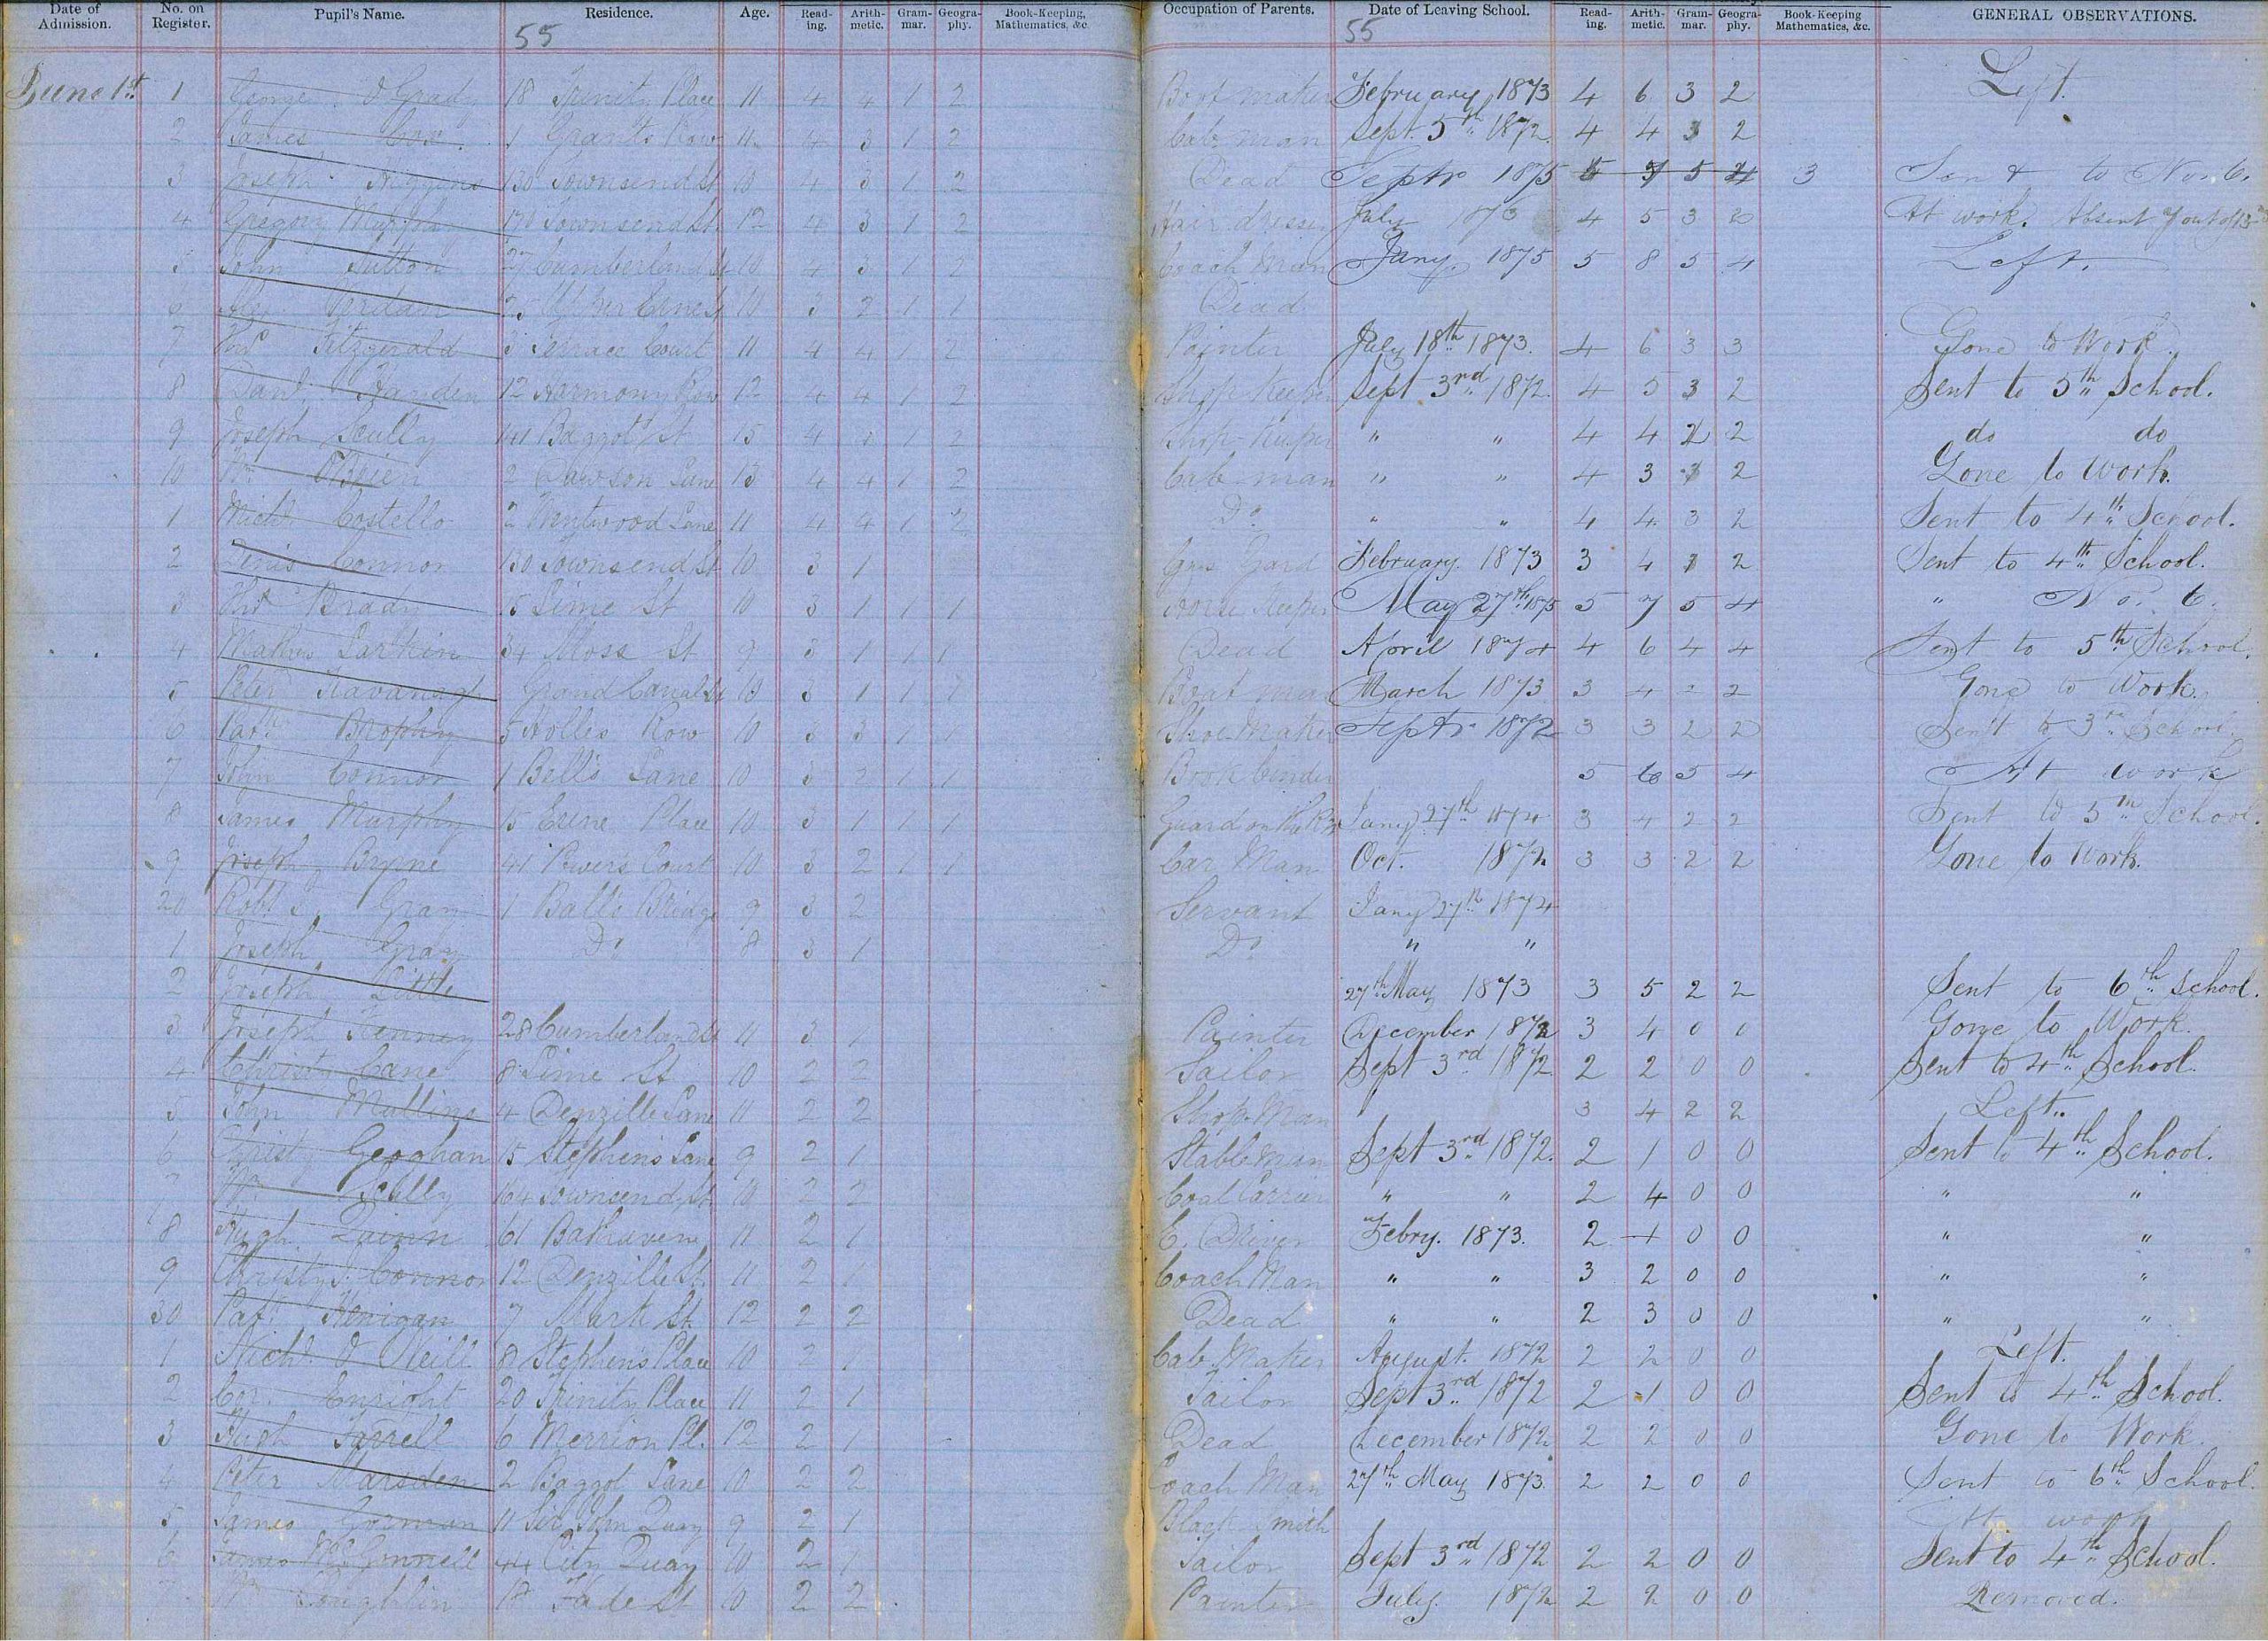 Date of Admission. No. on Register. Pupil's Name. Residence. Age. Read-ing. Arith-metic. Gram-mar. Geogra-phy. Book-Keeping, Mathematics, &c. Occupation of Parents. Date of Leaving School. Read-ing. Arith-metic. Gram-mar. Geogra-phy. Book-Keeping Mathematics, &c. GENERAL OBSERVATIONS.
55 55
June 1st 1 George O Grady 18 Trinity Place 11 4 4 1 2 Boot maker February 1873 4 6 3 2 Left.
2 James Cox 1 Grants Row 11 4 3 1 2 Cab man Sept. 5th 1872. 4 4 3 2
3 Joseph Higgins 130 Townsend St 10 4 3 1 2 Dead Septr 1875 5 3 to No. 6.
4 Gregory Murphy Townsend St 12 4 3 1 2 Hair dresser July 1873 4 5 3 At work. Absent 7 out of 13
5 John Sutton 27 Cumberland St 10 4 3 1 2 Coach Man Jany. 1875 5 8 5 4 Left.
6 25 10 3 2 1 1 Dead
7 Thos Fitzgerald 3 Terrace Court 11 4 4 1 2 Painter July 18th 1873. 4 6 3 3 Gone to Work.
8 Danl. Hayden 12 Harmony Row 12 4 4 1 2 Shop Keeper Sept 3rd 1872. 4 5 3 2 Sent to 5th School.
9 Joseph Scully 141 Baggot St 15 4 1 2 Shop-Keeper " " 4 4 2 2 do do
10 Wm O'Brien 2 Dawson Lane 13 4 4 1 2 Cab man " " 4 3 3 2 Gone to Work.
1 Michl Costello 2 Wentwood Lane 11 4 4 1 2 Do " " 4 4 3 2 Sent to 4th School.
2 Denis Connor 130 Townsend St 10 3 1 February. 1873 3 4 2 Sent to 4th School.
3 Thos Brady 15 Lime St 10 3 1 1 1 Horse Keeper May 27th 1875 5 7 5 4 " No. 6.
4 Larkin 34 Moss St 9 3 1 1 1 Dead April 1874 4 6 4 4 Sent to 5th School.
5 Peter Kavanagh Grand Canal St 10 3 1 1 1 Boat man March 1873 3 4 2 2 Gone to Work.
6 Patk Brophy 5 Holles Row 10 3 3 1 1 Shoe Maker Septr 1872 3 3 2 2 Sent to 3rd School.
7 John Connor 1 Bell's Lane 10 3 2 1 1 Book binder 5 6 5 4 At work
8 James Murphy 15 Erne Place 10 3 1 1 1 Guard on the Jany 27th 1874 3 4 2 2 Sent to 5th School.
9 Joseph Byrne 41 Power's Court 10 3 2 1 1 Car Man Oct. 1872 3 3 2 2 Gone to Work.
20 Robt Gray 1 Balls Bridge 9 3 2 Servant Jany 27th 1874
1 Joseph Gray Do 8 3 1 Do " "
2 Joseph Little 27th May 1873 3 5 2 2 Sent to 6th School.
3 Joseph Kenney 28 Cumberland St 11 3 1 Painter December 1872 3 4 0 0 Gone to Work.
4 Christy Cane 8 Lime St 10 2 2 Sailor Sept 3rd 1872. 2 2 0 0 Sent to 4th School.
5 John Mullins 4 Denzille Lane 11 2 2 Shop-Man 3 4 2 2 Left.
6 Christy Geoghan 15 Stephens Lane 9 2 1 Stable Man Sept 3rd 1872. 2 1 0 0 Sent to 4th School.
7 Wm Scully 164 Townsend St 10 2 2 Coal Carrier " " 2 4 0 0 " "
8 Hugh Quinn 61 Bath Avenue 11 2 1 E. Driver Febry. 1873. 2 1 0 0 " "
9 Christy Connor 12 Denzille St 11 2 1 Coach Man " " 3 2 0 0 " "
30 Patk Henigan 7 Mark St 12 2 2 Dead " " 2 3 0 0 " "
1 Michl O Neill 8 Stephens Place 10 2 1 Cab Maker August. 1872 2 2 0 0 Left.
2 Cor. Enright 20 Trinity Place 11 2 1 Tailor Sept 3rd 1872 2 1 0 0 Sent to 4th School.
3 Hugh Farrell 6 Merrion Pl. 12 2 1 Dead December 1872 2 2 0 0 Gone to Work.
4 Peter Marsden 2 Baggot Lane 10 2 2 Coach Man 27th May 1873. 2 2 0 0 Sent to 6th School.
5 James Gorman 11 Sir John Quay 9 2 1 Black Smith At work
6 James McConnell 44 City Quay 10 2 1 Sailor Sept 3rd 1872 2 2 0 0 Sent to 4th School.
7 Wm Loughlin 18 Fade St 10 2 2 Painter July. 1872 2 2 0 0 Removed.